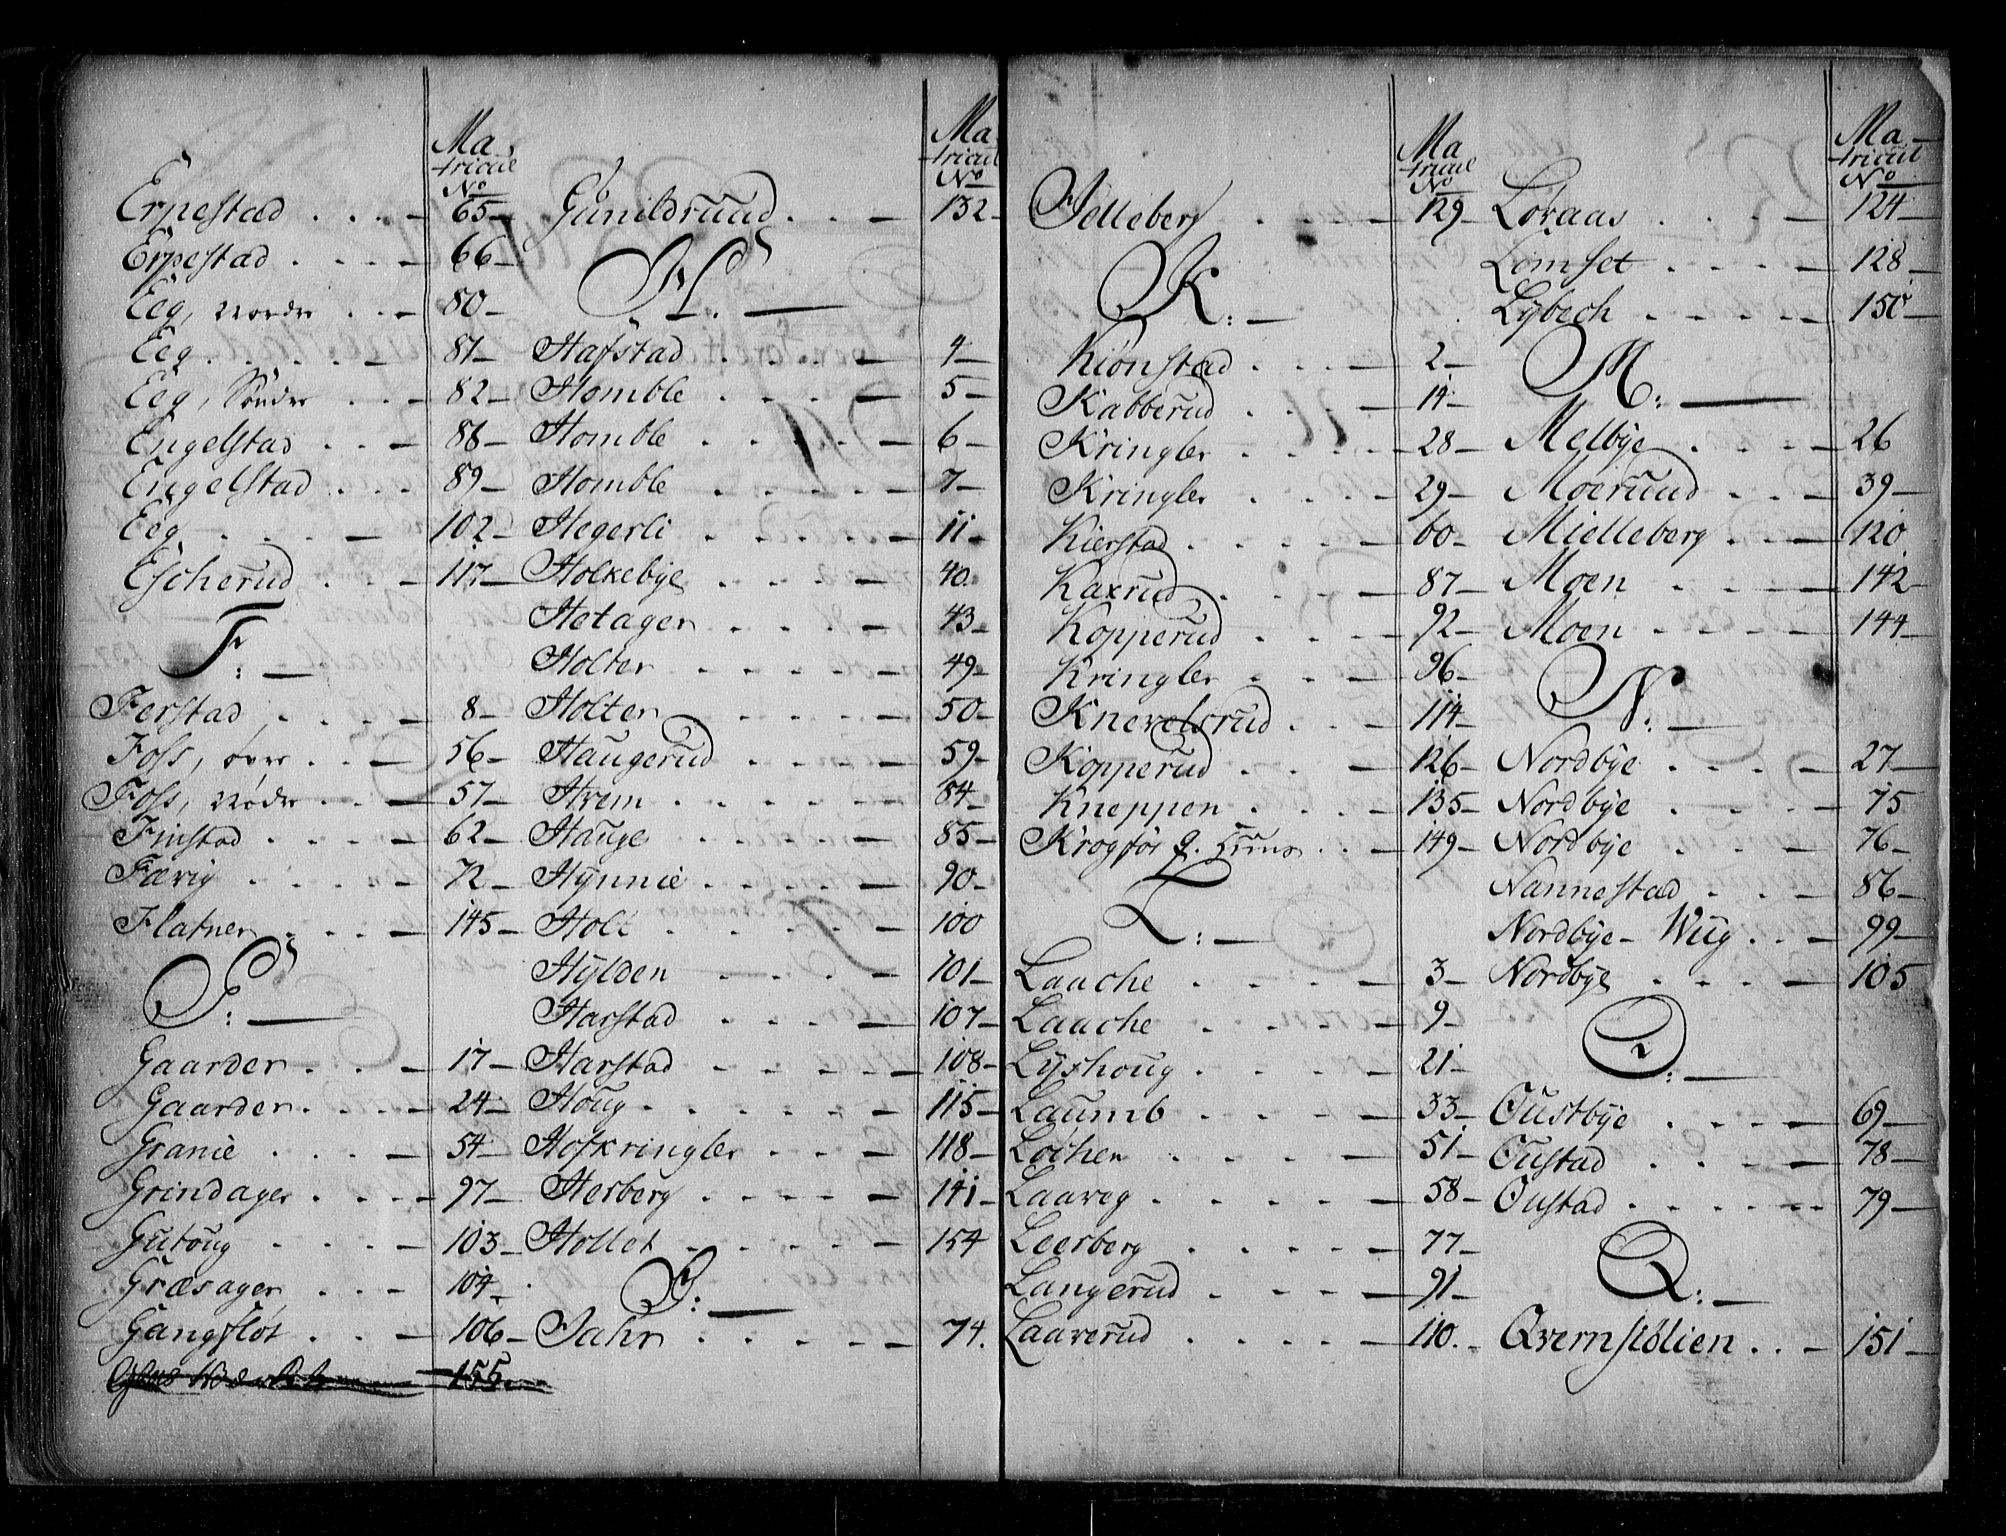 Matricul No
Erpestad . . . 65
Erpestad . . . 66
Eeg, nordre . . . 80
Eeg . . . . 81
Eeg, Söndre . . . 82
Engelstad . . . 88
Engelstad . . . 89
Eeg . . . . 102
Escherud . . . 117
F:
Ferstad . . . . 8
Foss, övre . . . 56
Foss, nedre . . . 57
Finstad . . . . 62
Færig . . . . 72
Flatner . . . . 145
G:
Gaarder . . . 17
Gaarder . . . 24
Granie . . . 54
Grindager . . . . 97
Gutoug . . . . 103
Græsager . . . 104
Gangfløt . . . 106
155
Matricul No
Gunildruud . . . 132
H.
Hafstad . . . . 4
Homble . . . . 5
Homble . . . . 6
Homble . . . . 7
Hegerli . . . . 11
Holkebye . . . . 40
Hetager . . . . 43
Holter . . . . 49
Holter . . . . 50
Haugerud . . . . 59
Hvem . . . . 84
Hauge . . . . 85
Hynnie . . . . 90
Holt . . . . 100
Hylden . . . . 101
Harstad . . . . 107
Harstad . . . . 108
Houg . . . . 115
Hofkringler . . . 118
Herberg . . . . 141
Hollet . . . . 154
J:
Jahr . . . . 74.
Matricul No
Jelleberg . . . . 129
K:
Kiönstad . . . 2
Kabberud . . . 14
Kringler . . . . 28
Kringler . . . . 29
Kierstad . . . . 60
Kaxrud . . . . 87
Kopperud . . . . 92
Kringler . . . 96
Knevelsrud . . . 114
Kopperud . . . 126
Kneppen . . . . 135
Krogfos . . . 149
L:
Laache . . . . 3
Laache . . . . 9
Lyshoug . . . . 21
Laumb . . . . 33
Lochen . . . . 51
Laaveg . . . . 58
Leerberg . . . . 77
Langerud . . . . 91
Laaverud . . . . 110.
Matricul No
Loraas . . . . 124
Lomset . . . . 128
Lybech . . . . 150
M:
Melbye . . . . 26
Moeruud . . . 39
Mielleberg . . . 120
Moen . . . . 142
Moen . . . . 144
N:
Nordbye . . . . 27
Nordbye . . . . 75
Nordbye . . . 76
Nannestad . . . 86
Nordbye - Wug . . . 99
Nordbye . . . . 105
O:
Oustbye . . . . 69
Oustad . . . . 78
Oustad . . . . 79
Q:
Qvernstölien . . . 151